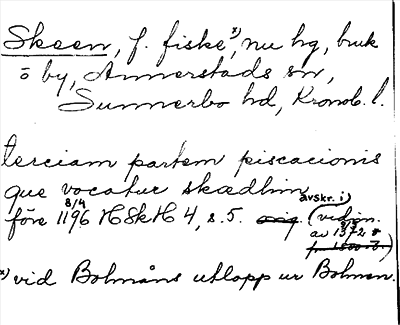 Skeen, f. fiske x), nu hg, bruk
o by, Annerstads sn,
Sunnerbo hd, Kronob. l.
terciam partem piscacionis
que vocatur skædhim
före 8/4 1196 HSkH 4, s. 5. orig. avskr. i) (vidim.
av 1372
x) vid Bolmåns utlopp ur Bolmen.